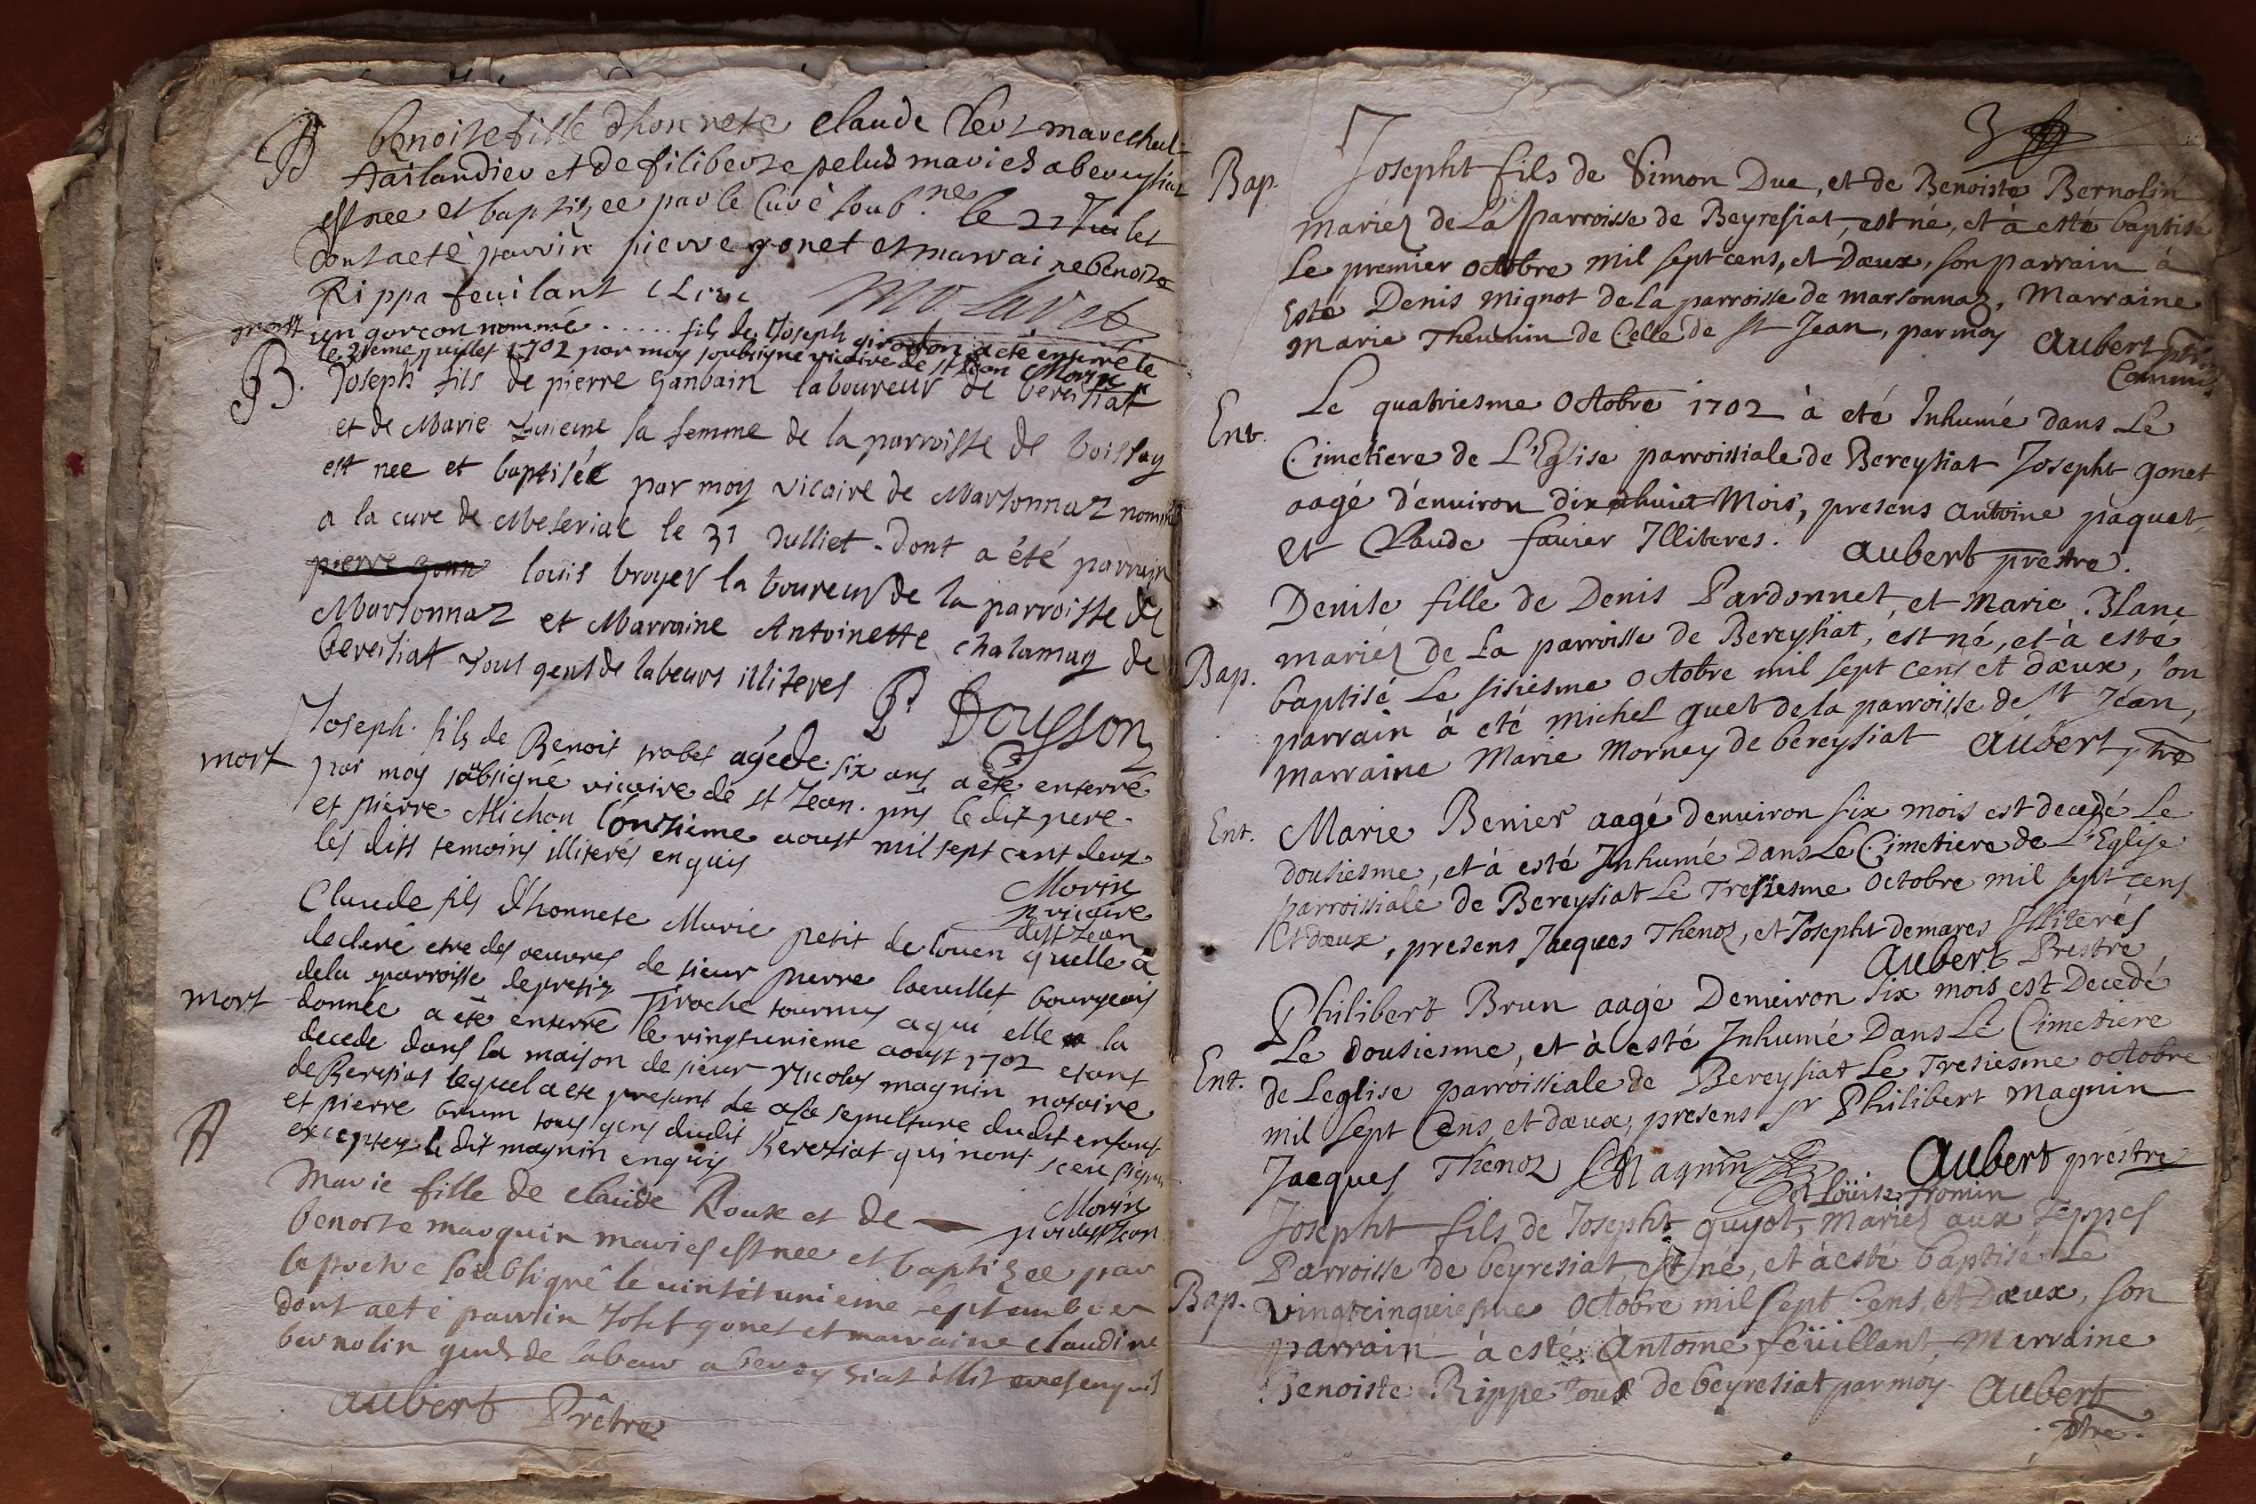 B benoite fille dhonnete claude
tailandier et de filiberte pelus maries a bereysiat
est nee et baptizee par le Curè soub.ne le 27 Juilet
dont a eté parrin pierre gonet et marrai ne benoite
Rippa feuilant
un garcon nommé ..... fils de Joseph a eté enterré le
31eme juillet 1702 par moy soubsigné vicaire de st Jean Morin
B. Joseph fils de pierre laboureur de bereisiat
et de Marie sa femme de la parroisse de boissey
est nee et baptisée par moy vicaire de Marsonnaz nommé
a la cure de Meseriat le 31 Julliet. dont a été parrain
louis broyer laboureur de la parroisse de
Marsonnaz et Marraine Antoinette chalamay de
bereisiat tous gens de labeurs illiteres
P. Dousson
Joseph fils de Benoit probet agé de six ans a eté enterré
mort par moy soubsigné vicaire de st Jean. pns le dit pere
et pierre Michon l'onzieme aoust mil sept cent deux
les dits temoins illiteres enquis
Morin
vicaire
de st Jean
Claude fils d'honnete Marie petit de louen quelle a
declaré etre des oeuvres de sieur pierre loeuillet bourgeois
de la parroisse de presiz proche tournus a qui elle la
mort donnée a eté enterré le vingtunieme aoust 1702 etant
decede dans la maison de sieur Nicolas magnin notaire
de Beresiat lequel a ete present a la sepulture dudit enfant
et pierre brun tous gens dudit Bereziat qui nont sceu signer
excepter le dit magnin enquis
Morin
B Marie fille de claude Roux et de
benoite marquin maries est nee et baptizee par
le pretre soubsigné le vintetunieme septembre
dont a eté parrin Josef gonet et marraine claudine
bernolin gens de labeur a bereysiat illiteres enquis
Aubert Prêtre
3
Bap. Josepht fils de Simon Duc, et de Benoiste Bernolin
mariez de La parroisse de Beyresiat, est né, et à esté baptisé
Le premier octobre mil sept cens, et dœux, son parrain à
Esté Denis mignot de la parroisse de marsonnaz, Marraine
marie Theuenin de Celle de st Jean, par moy Aubert ptre
Commis
Ent. Le quatriesme Octobre 1702 à eté Inhumé dans Le
Cimetiere de L'Eglise parroissiale de Bereysiat Josepht gonet
aagé d'enuiron dix et huict Mois, presens antoine paquet,
et Claude fauier Illiteres. Aubert prestre.
Denise fille de Denis Pardonnet, et Marie Blanc
Bap. mariez de La parroisse de Bereysiat, est né, et à esté
baptisé Le sisiesme Octobre mil sept cens et dœux, son
parrain à eté michel guet de la parroisse de st Jean,
marraine Marie Morney de bereysiat Aubert ptre
Ent. Marie Benier aagé denuiron six mois est decedé Le
dousiesme, et à esté Inhumé Dans Le Cimetiere de L'Eglise
parroissiale de Bereysiat Le Tresiesme Octobre mil sept cens
et dœux, presens Jacques Thenoz, et Josepht demares Illiterés
Aubert Prestre
Philibert Brun aagé Denuiron six mois est Decedé
Ent. Le dousiesme, et à esté Inhumé Dans Le Cimetiere
de Leglise parroissiale de Bereysiat Le Tresiesme octobre
mil sept Cens, et dœux, presens sr Philibert Magnin
Jacques Thenoz Magnin Aubert prestre
et Loüise fromin
Josepht fils de Josepht guyot, Mariez aux Teppes
Parroisse de beyresiat, est né, et à esté baptisé Le
Bap. vingtcinquiesme Octobre mil sept Cens, et Dœux, son
parrain à esté Antoine feüillant, Marraine
Benoiste Rippe tous de beyresiat par moy Aubert
ptre.